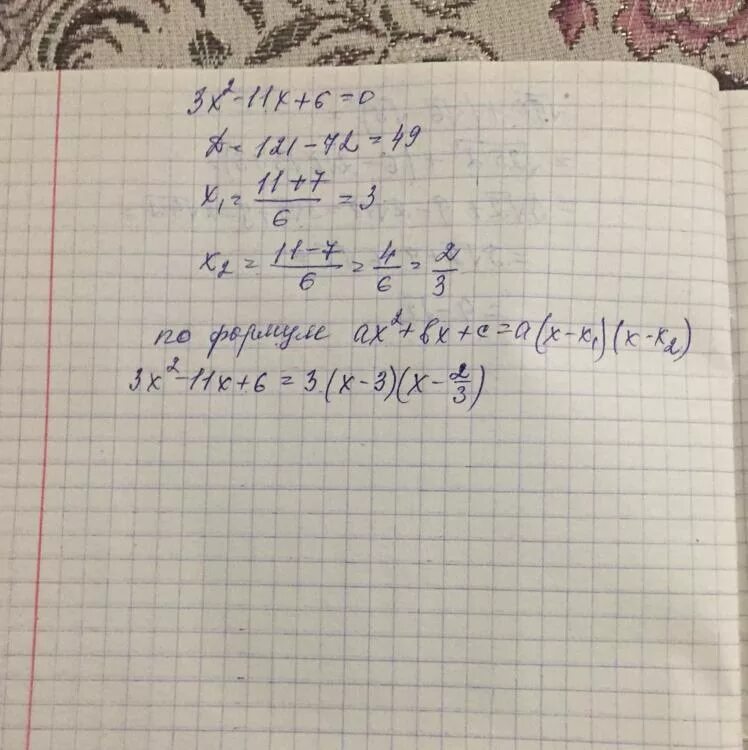 3x²-11x+6=0
D= 121-72=49
x₁= (11+7)/6 =3
x₂ = (11-7)/6 = 4/6 = 2/3
по формуле ax²+bx+c=a(x-x₁)(x-x₂)
3x²-11x+6=3(x-3)(x-2/3)